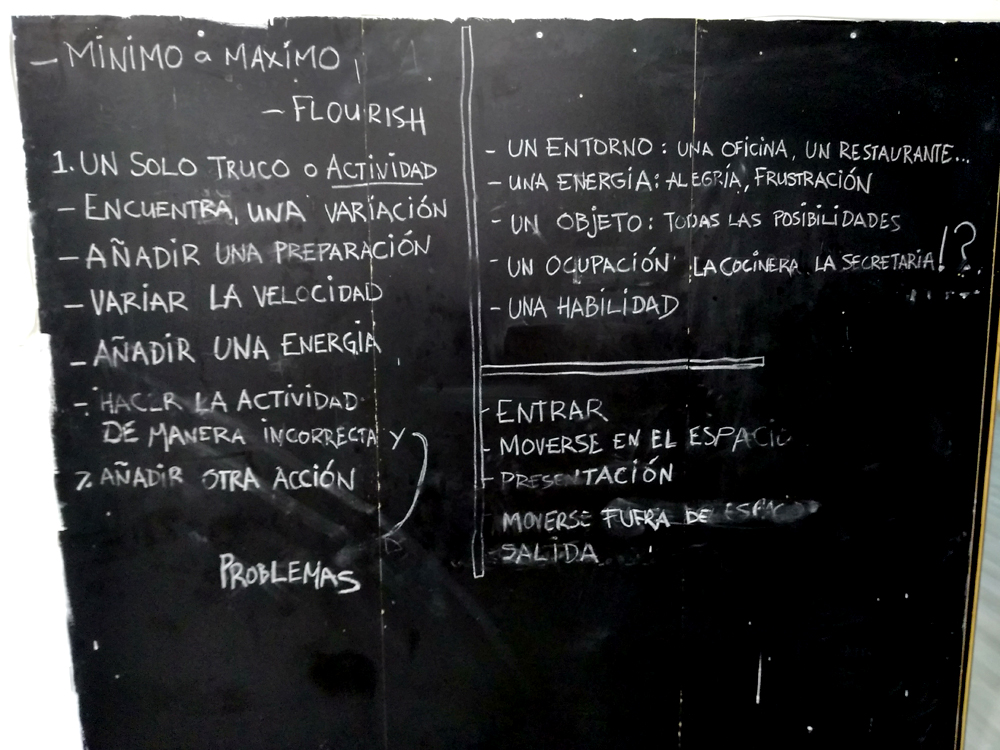 - MÍNIMO a MAXÍMO
- FLOURISH
1. UN SOLO TRUCO O ACTIVIDAD
- ENCUENTRA, UNA VARIACIÓN
- AÑADIR UNA PREPARACIÓN
- VARIAR LA VELOCIDAD
- AÑADIR UNA ENERGÍA
- HACER LA ACTIVIDAD
DE MANERA INCORRECTA Y
7. AÑADIR OTRA ACCIÓN
PROBLEMAS
- UN ENTORNO: UNA OFICINA, UN RESTAURANTE...
- UNA ENERGÍA: ALEGRÍA, FRUSTRACIÓN
- UN OBJETO: TODAS LAS POSIBILIDADES
- UN OCUPACIÓN: LA COCINERA LA SECRETARIA!?
- UNA HABILIDAD
- ENTRAR
- MOVERSE EN EL ESPACIO
- PRESENTACIÓN
MOVERSE FUERA DE ESPACIO
- SALIDA